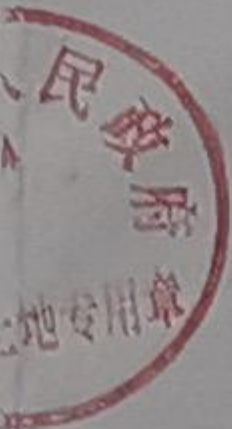 民政府
地专用章